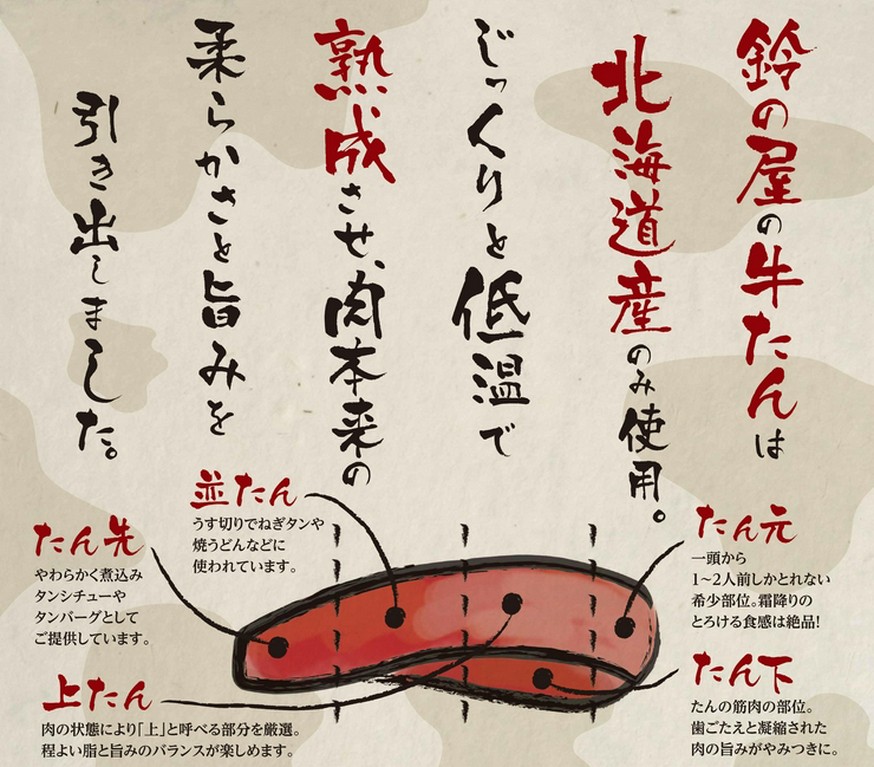 鈴の屋の牛たんは
北海道産のみ使用。
じっくりと低温で
熟成させ、肉本来の
柔らかさと旨みを
引き出しました。
たん元
一頭から
1~2人前しかとれない
希少部位。霜降りの
とろける食感は絶品!
たん下
たんの筋肉の部位。
歯ごたえと凝縮された
肉の旨みがやみつきに。
並たん
うす切りでねぎタンや
焼うどんなどに
使われています。
たん先
やわらかく煮込み
タンシチューや
タンバーグとして
ご提供しています。
上たん
肉の状態により「上」と呼べる部分を厳選。
程よい脂と旨みのバランスが楽しめます。